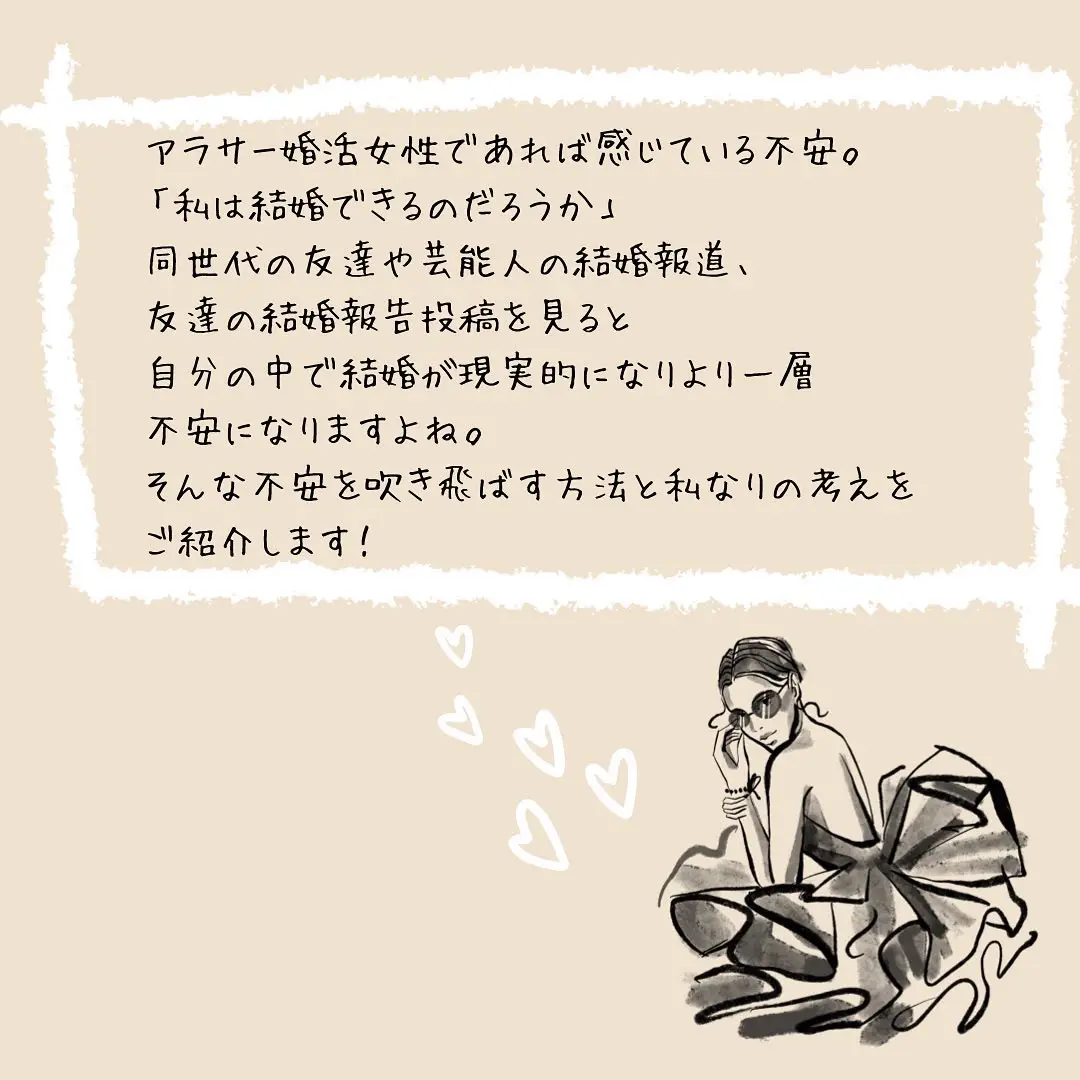 アラサー婚活女性であれば感じている不安。
「私は結婚できるのだろうか」
同世代の友達や芸能人の結婚報道、
友達の結婚報告投稿を見ると
自分の中で結婚が現実的になりより一層
不安になりますよね。
そんな不安を吹き飛ばす方法と私なりの考えを
ご紹介します!